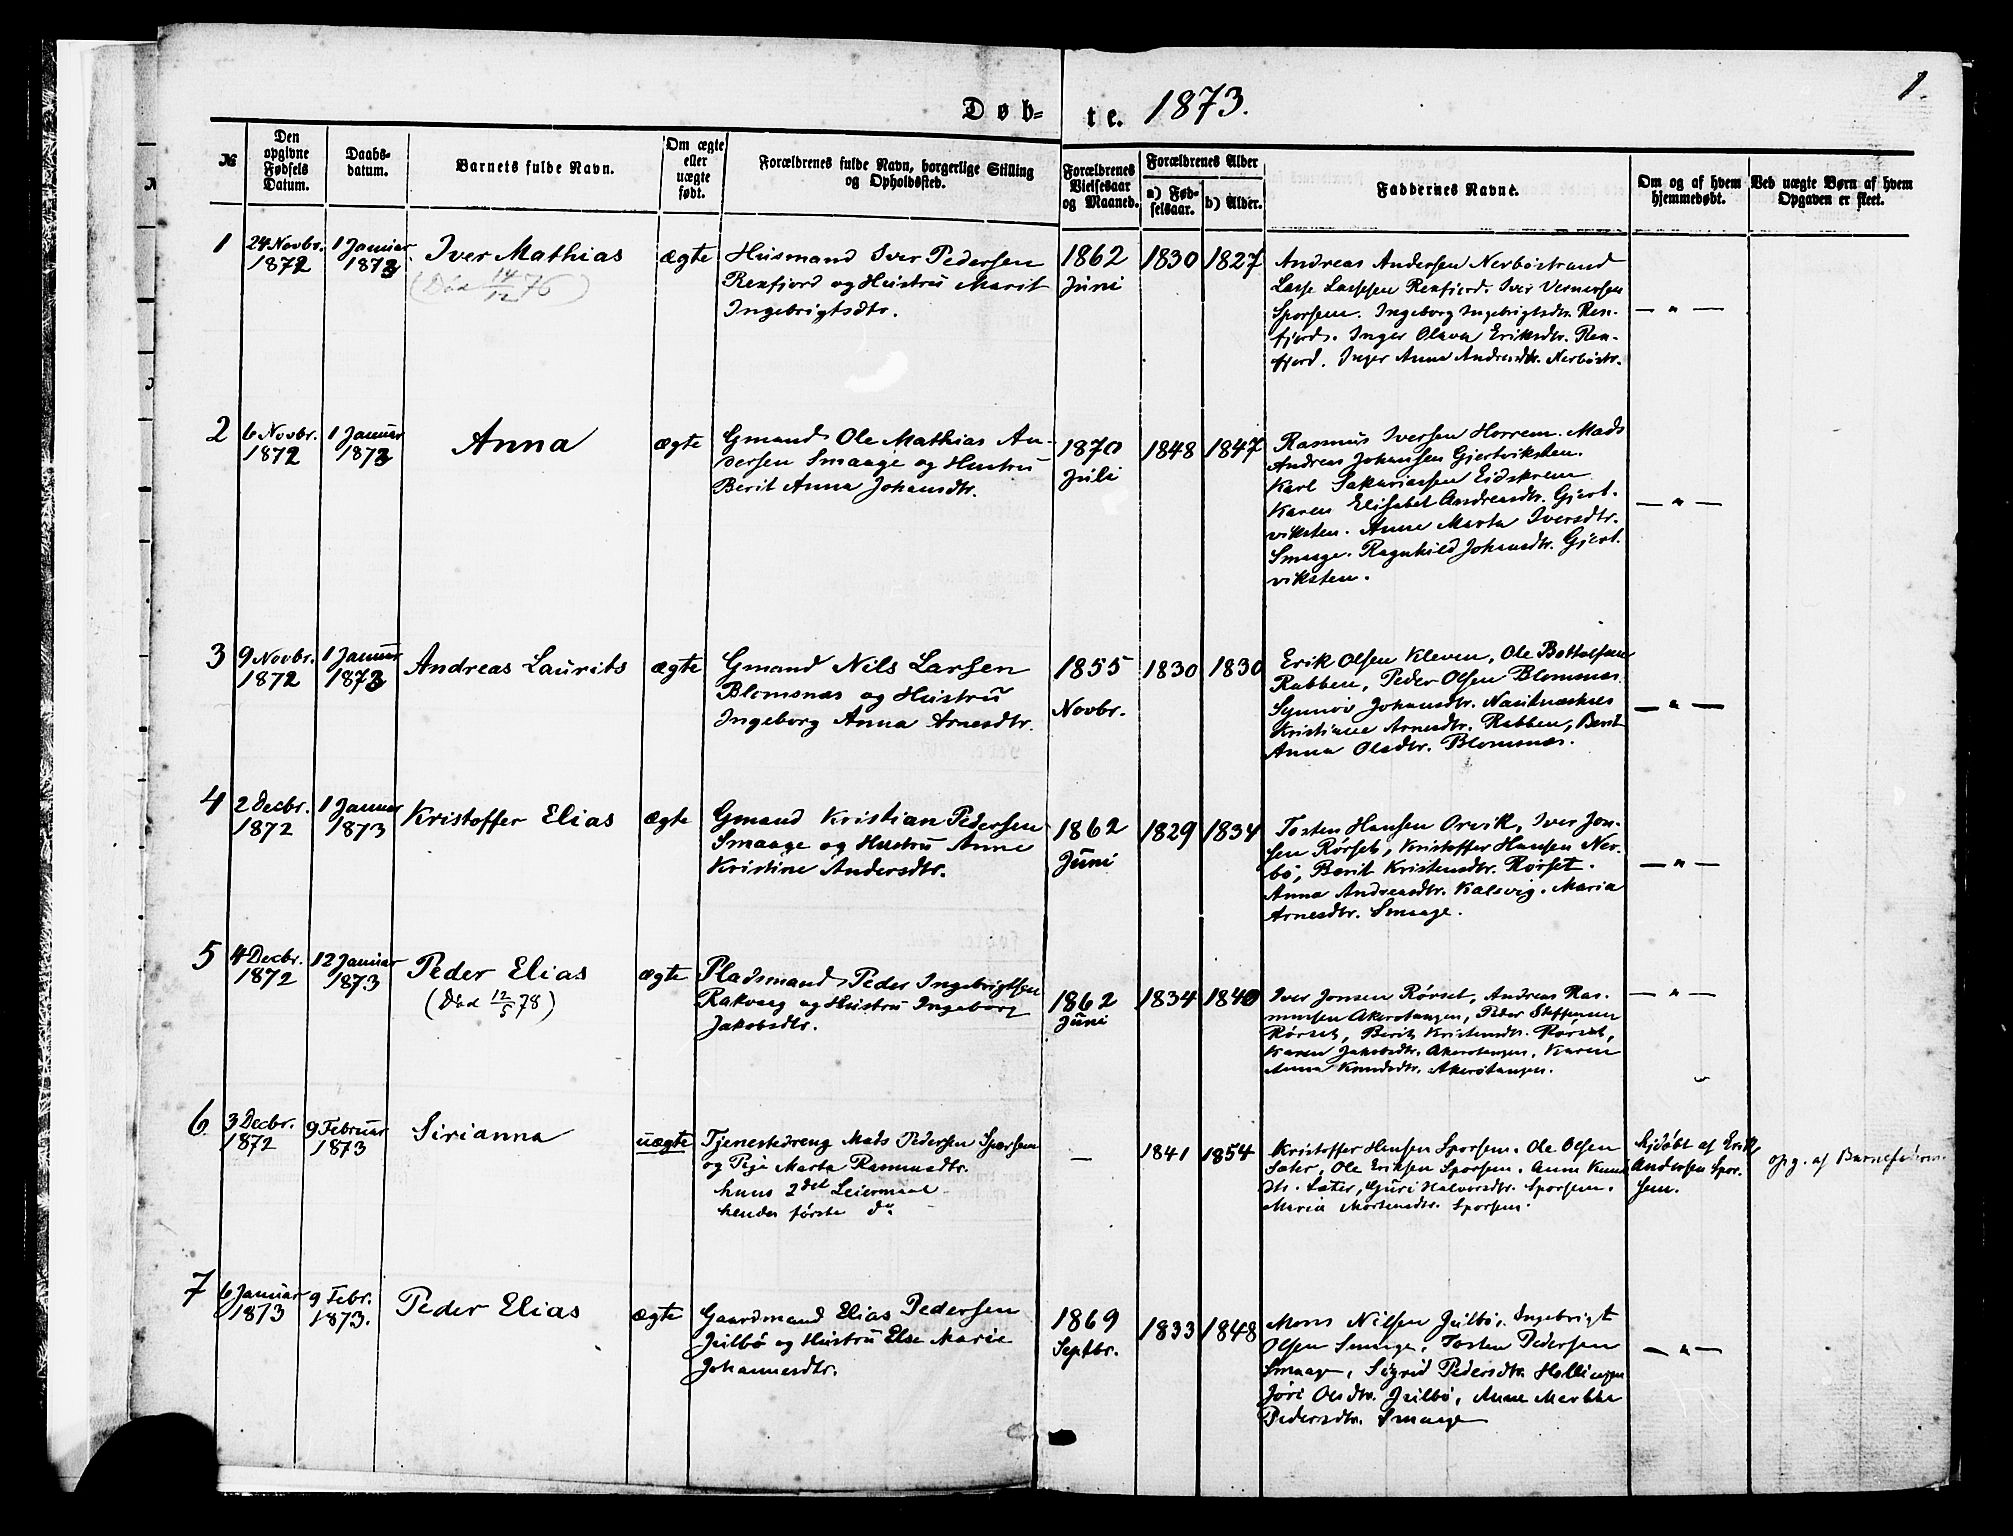 Døb-
te. 1873.
1.
№
Den opgivne Fødsels Datum.
Daabs-datum.
Barnets fulde Navn.
Om ægte eller uægte født.
Forældrenes fulde Navn, borgerlige Stilling og Opholdssted.
Forældrenes Vielsesaar og Maaned.
Forældrenes Alder
a) Fød-selsaar.
b) Alder.
Faddernes Navne.
Om og af hvem hjemmedøbt.
Ved uægte Børn af hvem Opgaven er skeet.
1
24 Novbr. 1872
1 Januar 1873
Iver Mathias
(Død 14/12 76)
ægte
Husmand Iver Pedersen
Renfjord og Hustru Marit
Ingebrigtsdtr.
1862
Juni
1830
1827
Andreas Andersen Nerbøstrand
Lasse Lassesen Renfjord. Iver
Sporsem. Ingeborg Ingebrigtsdtr. Ren-
fjord. Inger Olava Eriksdtr. Ren-
fjord. Inger Anna Andreasdtr. Nerbøstr.
— " —
2
6 Novbr. 1872
1 Januar 1873
Anna
ægte
Gmand Ole Mathias An-
dersen Smaage og Hustru
Berit Anna Johansdtr.
1870
Juli
1848
1847
Rasmus Iversen Horrem. Mads
Andreas Johansen Gjertviksten.
Karl Sakariassen Eidskrem
Karen Elisabet Andreasdtr. Gjert-
viksten. Anne Marta Iversdtr.
Smaage. Ragnhild Johansdtr. Gjert-
viksten.
— " —
3
9 Novbr. 1872
1 Januar 1873
Andreas Laurits
ægte
Gmand Nils Larsen
Blomsnas og Hustru
Ingeborg Anna Arnesdtr.
1855
Novbr.
1830
1830
Erik Olsen Kleven, Ole Bottolfsen
Rabben, Peder Olsen Blomsnas
Synnøv Johansdtr.
Kristiane Arnesdtr. Rabben, Berit
Anna Olsdtr. Blomsnas.
— " —
4
2 Decbr. 1872
1 Januar 1873
Kristoffer Elias
ægte
Gmand Kristian Pedersen
Smaage og Hustru Anne
Kristine Andersdtr.
1862
Juni
1829
1834
Tosten Hansen Orvik, Iver Jon-
sen Rørset, Kristoffer Hansen Ner-
bø, Berit Kristensdtr. Rørset.
Anna Andreasdtr. Kalsvig. Maria
Arnesdtr. Smaage.
— " —
5
4 Decbr. 1872
12 Januar 1873
Peder Elias
(Død 12/5 78)
ægte
Pladsmand Peder Ingebrigtsen
Rakvaag og Hustru Ingeborg
Jakobsdtr.
1862
Juni
1834
1840
Iver Jonsen Rørset, Andreas Ras-
mussen Akerøtangen, Peder Steffensen
Rørset, Berit Kristensdtr. Rørset,
Karen Jakobsdtr. Akerøtangen, Karen
Anna Knudsdtr. Akerøtangen.
— " —
6
3 Decbr. 1872
9 Februar 1873
Sirianna
uægte
Tjenestedreng Mads Pedersen Sporsem
og Pige Marta Rasmusdtr.
hans 2det Leiermaal
hendes første do
—
1841
1854
Kristoffer Hansen Sporsem. Ole Olsen
Sæter, Ole Eriksen Sporsem. Anne Knuds-
dtr. Sæter, Guri Halvorsdtr. Sporsem.
Maria Mortensdtr. Sporsem.
hjdøbt af Erik
Andersen Spor-
sem.
opg. af Barnefaderen
7
6 Januar 1873
9 Febr. 1873.
Peder Elias
ægte
Gaardmand Elias Pedersen
Julbø og Hustru Else Marie
Johannesdtr.
1869
Septbr.
1833
1848
Mons Nilsen Julbø, Ingebrigt
Olsen Smaage, Tosten Pedersen
Smaage, Sigrid Pedersdtr.
Jøri Olsdtr. Julbø, Anne Marthe
Pedersdtr. Smaage
— " —